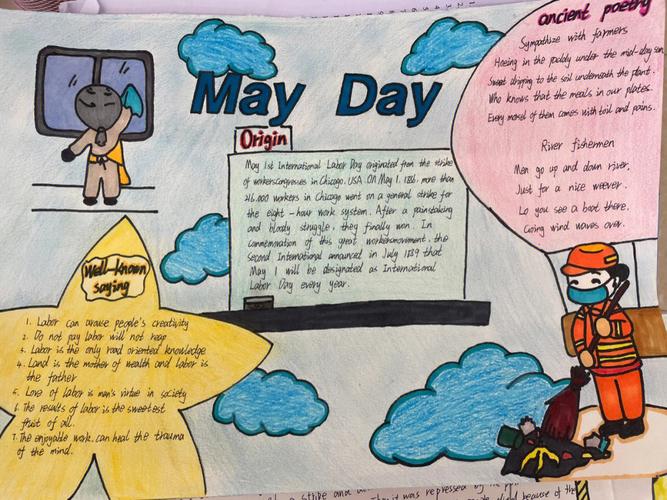 May Day
Origin
May 1st International Labor Day originated from the strike
of workersCongresses in Chicago. USA. ON May 1. 1886. more than
216.000 workers in Chicago went on a general strike for
the eight-hour work system. After a painstaking
and bloody struggle, they finally won. In
commemoration of this great workersmovement. the
Second International announced in July 1889 that
May 1 will be designated as International
Labor Day every year.
ancient poetry
Sympathize with farmers
Hoeing in the paddy under the mid-day sun,
Sweat dripping to the soil underneath the plant.
Who knows that the meals in our plates.
Every morsel of them comes with toil and pains.
River fishermen
Men go up and down river.
Just for a nice weever.
Lo you see a boat there.
Going wind waves over.
Well-known
saying
1. Labor can arouse people's creativity
2. Do not pay labor will not reap
3. Labor is the only road oriented knowledge
4. Land is the mother of wealth and labor is
the father
5. Love of labor is man's virtue in society
6. The results of labor is the sweetest
fruit of all.
7. The enjoyable work. can heal the trauma
of the mind.